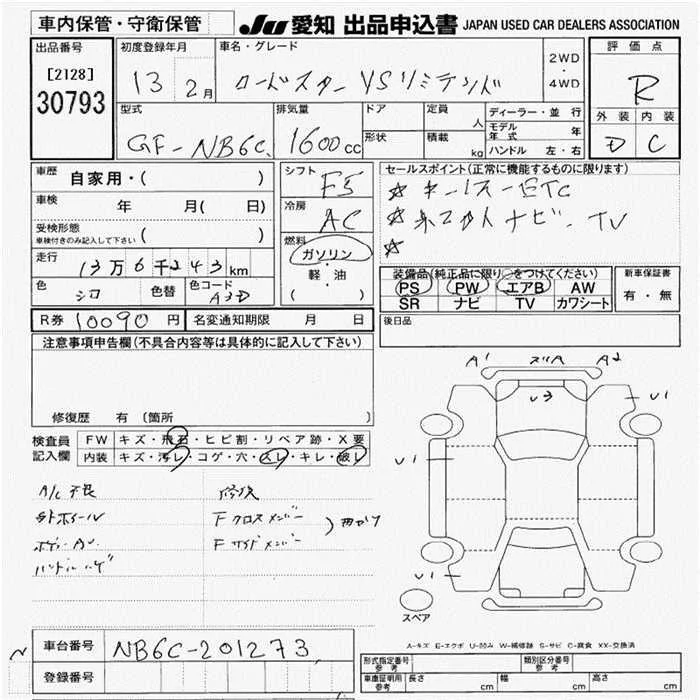 車内保管・守衛保管
JU 愛知 出品申込書 JAPAN USED CAR DEALERS ASSOCIATION
出品番号
[2128]
30793
初度登録年月
13 2月
車名・グレード
ロードスター VSリミテッド
2WD
・
4WD
評価点
R
外装 内装
D C
型式
GF-NB6C
排気量
1600cc
ドア
形状
定員 人
積載 kg
ディーラー・並行
モデル年式 年
ハンドル 左・右
車歴 自家用・( )
車検 年 月( 日)
受検形態
車検付きのみ記入して下さい ( )
走行 13万6千243km
色 シロ 色替 色コード A3D
シフト F5
冷房 AC
燃料
ガソリン
・
軽油
( )
セールスポイント(正常に機能するものに限ります)
☆ キーレス-ETC
☆ ナビ・TV
☆
装備品(純正品に限り○をつけてください)
PS PW エアB AW
SR ナビ TV カワシート
新車保証書
有・無
R券 10090円 名変通知期限 月 日
後日品
注意事項申告欄(不具合内容等は具体的に記入して下さい)
修復歴 有 〔箇所 〕
検査員
記入欄
FW キズ・飛石・ヒビ割・リペア跡・X要
内装 キズ・汚レ・コゲ・穴・スレ・キレ・破レ
A/C不良 修復
外ホイール Fクロスメンバー
ボデーAU Fサイドメンバー 曲がり
ハンドルハゲ
A1 スリA A2
U3
U1
U1
U1
スペア
A-キズ E-エクボ U-凹み W-補修跡 S-サビ C-腐食 XX-交換済
車台番号 NB6C-201273
登録番号
型式指定番号 参考
類別区分番号 参考
車庫証明用 参考 長さ cm 幅 cm 高さ cm